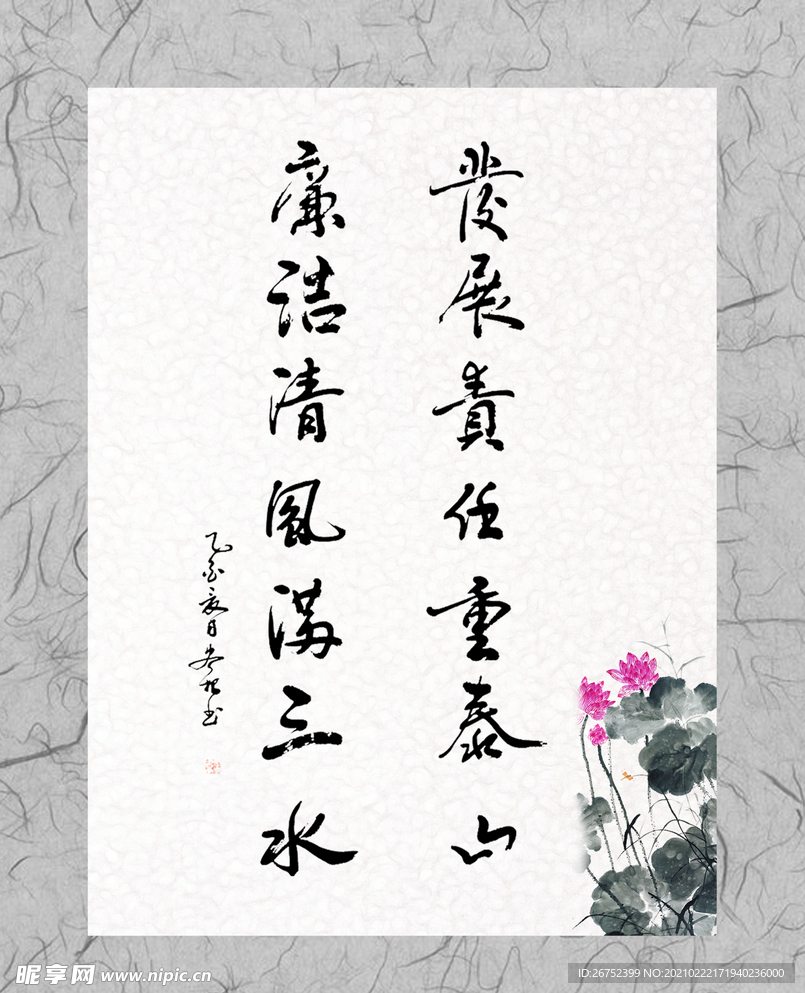 發展責任重泰山
廉洁清風滿三水
昵享网 www.nipic.cn
ID:26752399 NO:20210222171940236000